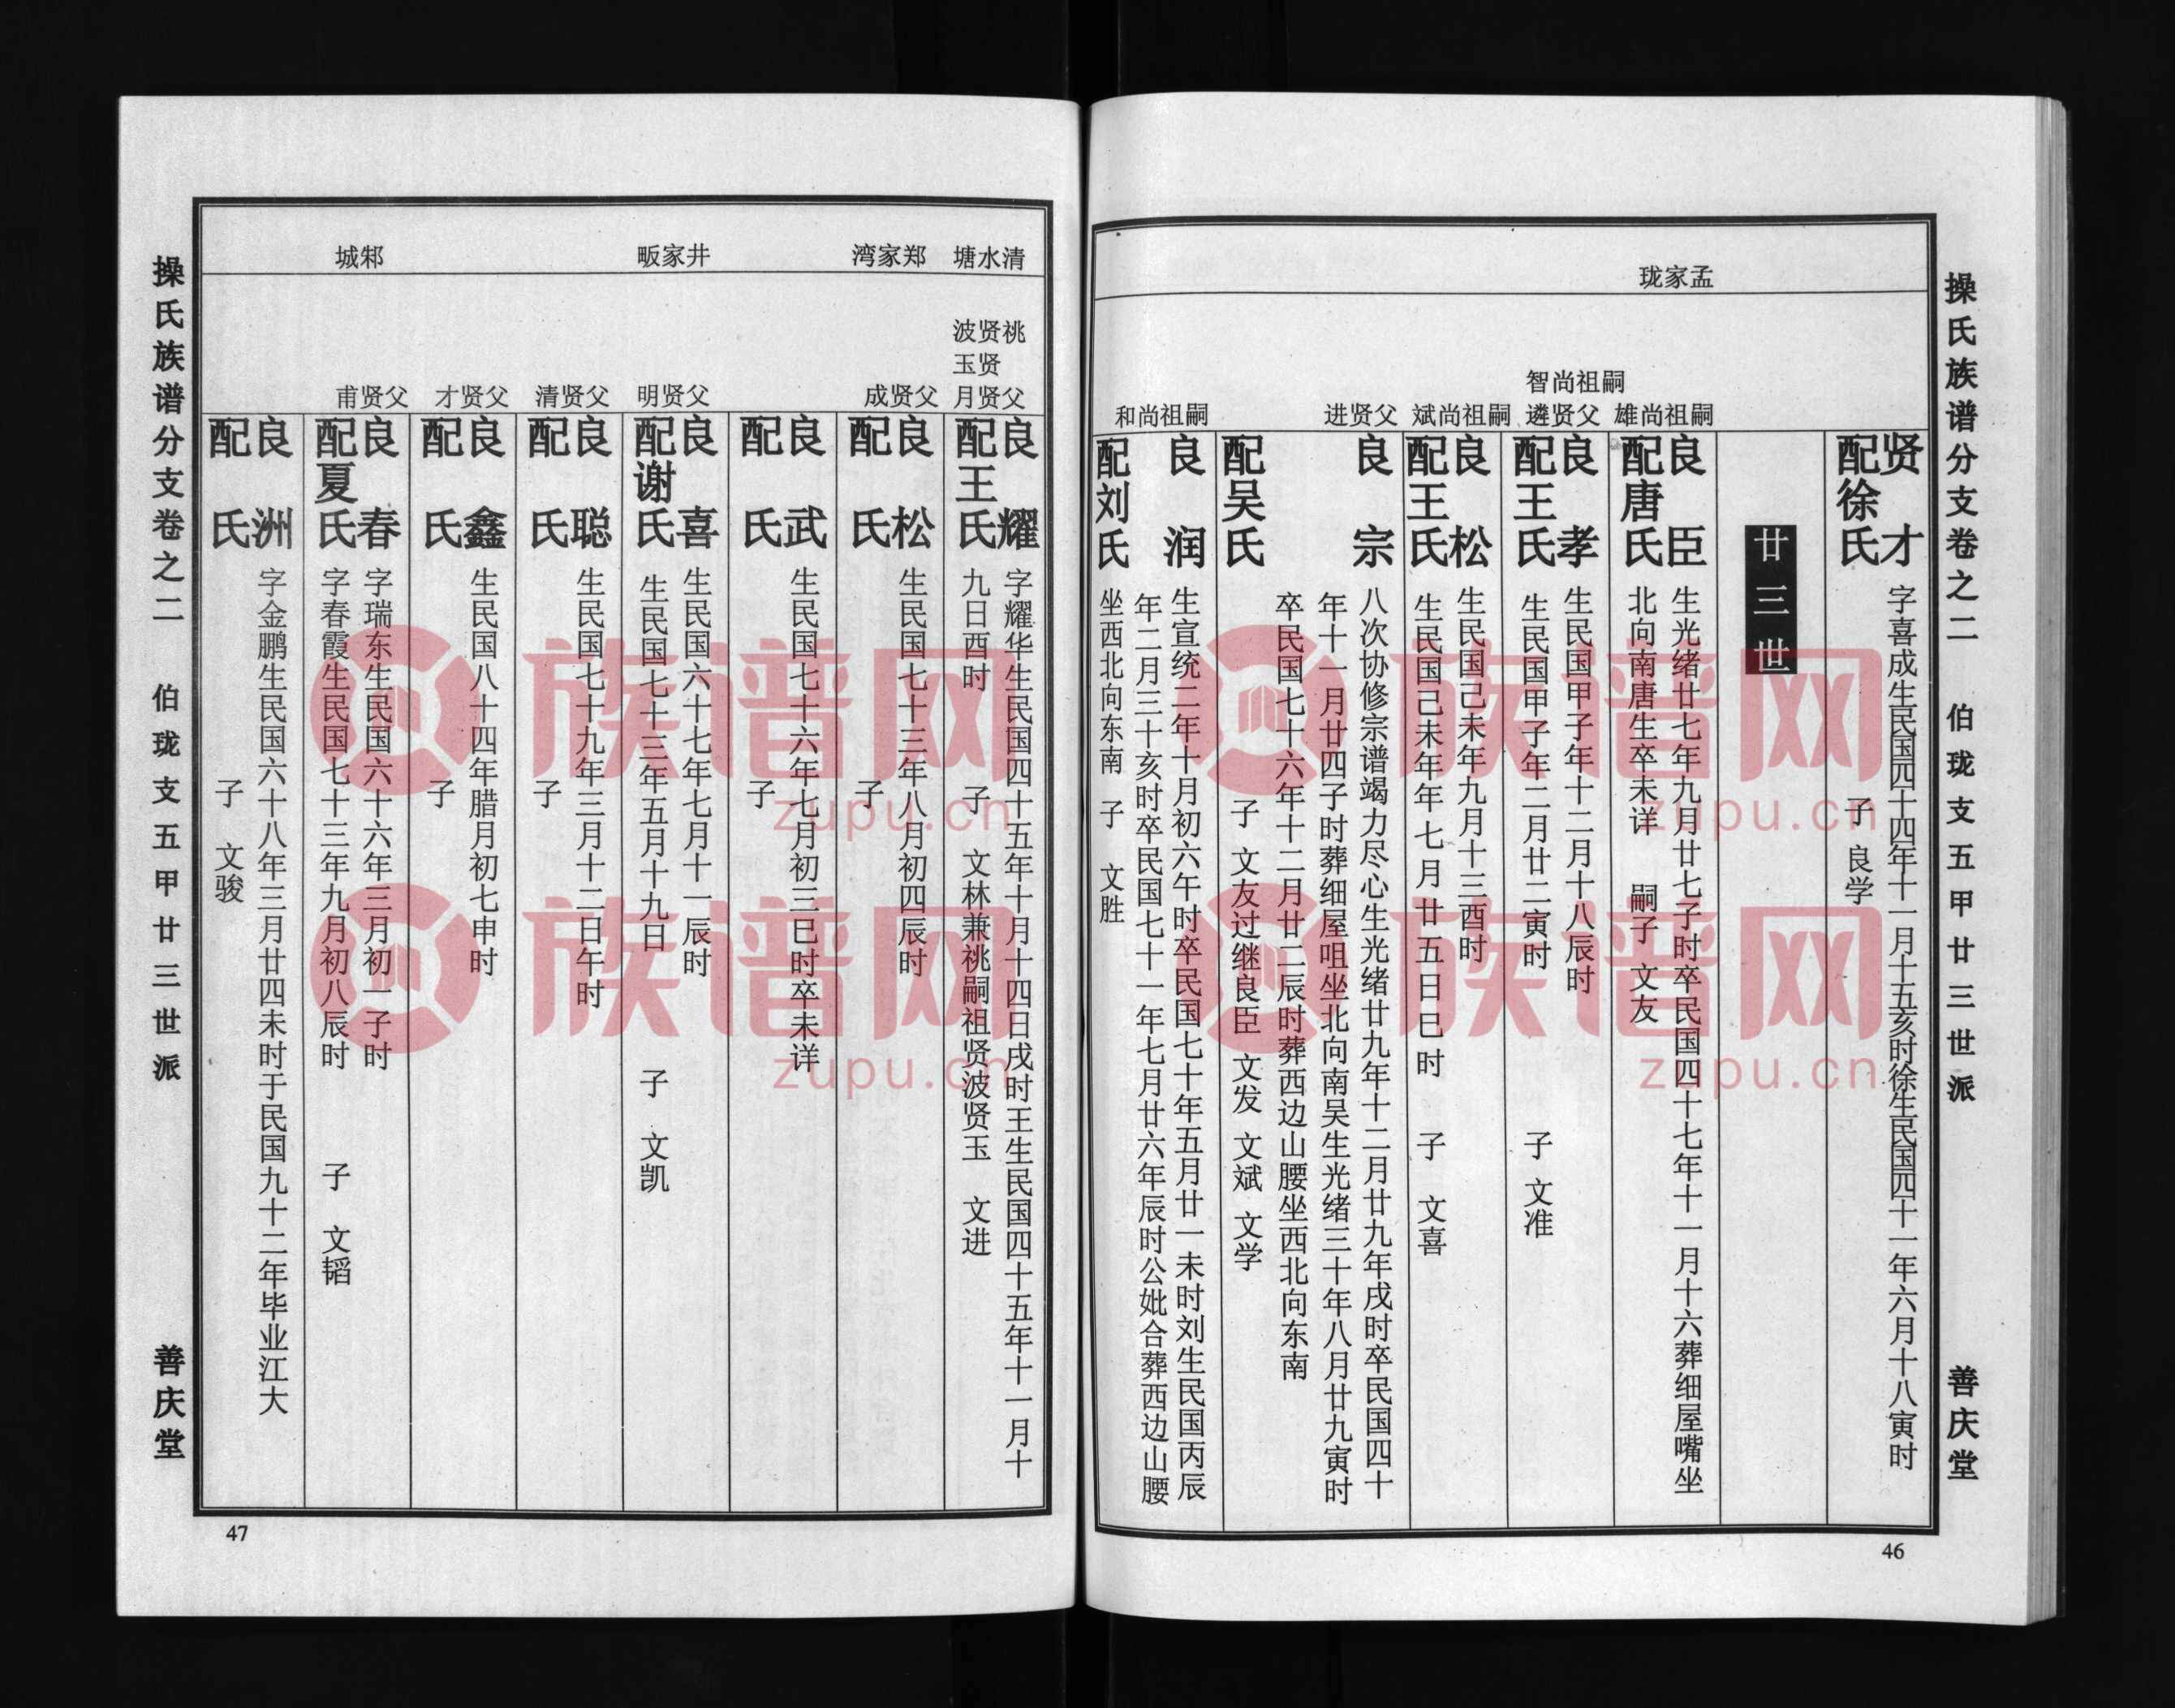 操氏族谱分支卷之二　伯珑支五甲廿三世派　善庆堂
46
孟家珑
贤才
字喜成生民国四十四年十一月十五亥时徐生民国四十一年六月十八寅时
配徐氏
子　良学
廿三世
嗣祖尚雄
良臣
生光绪廿七年九月廿七子时卒民国四十七年十一月十六葬细屋嘴坐
配唐氏
北向南唐生卒未详　嗣子　文友
嗣祖尚智
父贤遴
良孝
生民国甲子年十二月十八辰时
配王氏
生民国甲子年二月廿二寅时　子　文准
嗣祖尚斌
良松
生民国己未年九月十三酉时
配王氏
生民国己未年年七月廿五日巳时　子　文喜
父贤进
良宗
八次协修宗谱竭力尽心生光绪廿九年十二月廿九年戌时卒民国四十
年十一月廿四子时葬细屋咀坐北向南吴生光绪三十年八月廿九寅时
卒民国七十六年十二月廿二辰时葬西边山腰坐西北向东南
配吴氏
子　文友过继良臣　文发　文斌　文学
嗣祖尚和
良润
生宣统二年十月初六午时卒民国七十年五月廿一未时刘生民国丙辰
年二月三十亥时卒民国七十一年七月廿六年辰时公妣合葬西边山腰
配刘氏
坐西北向东南　子　文胜
清水塘
祧贤波
贤玉
父贤月
良耀
字耀华生民国四十五年十月十四日戌时王生民国四十五年十一月十
配王氏
九日酉时　子　文林兼祧嗣祖贤波贤玉　文进
郑家湾
父贤成
良松
生民国七十三年八月初四辰时
配　氏
子
良武
生民国七十六年七月初三巳时卒未详
配　氏
子
井家畈
父贤明
良喜
生民国六十七年七月十一辰时
配谢氏
生民国七十三年五月十九日　子　文凯
父贤清
良聪
生民国七十九年三月十二日午时
配　氏
子
父贤才
良鑫
生民国八十四年腊月初七申时
配　氏
子
邾城
父贤甫
良春
字瑞东生民国六十六年三月初一子时
配夏氏
字春霞生民国七十三年九月初八辰时　子　文韬
良洲
字金鹏生民国六十八年三月廿四未时于民国九十二年毕业江大
配　氏
子　文骏
操氏族谱分支卷之二　伯珑支五甲廿三世派　善庆堂
47
族谱网
zupu.cn
族谱网
zupu.cn
族谱网
zupu.cn
族谱网
zupu.cn